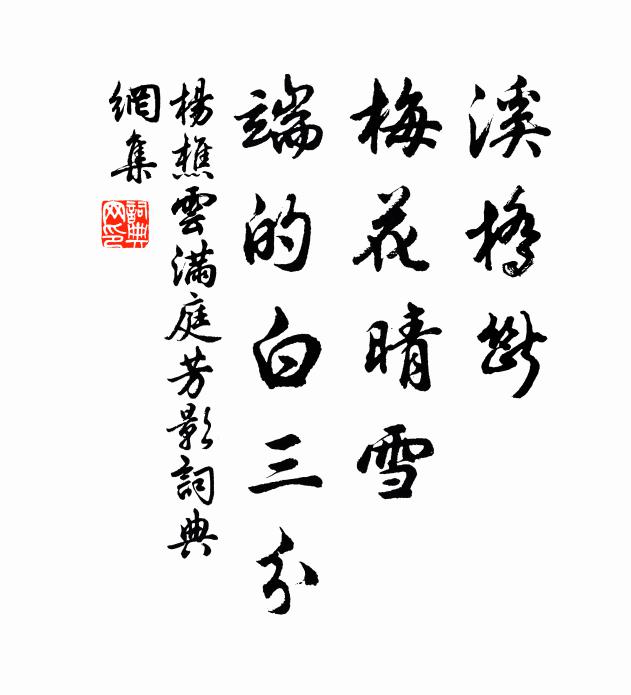 溪橋斷
梅花晴雪
端的白三分
楊樵雲滿庭芳影詞典
網集
詞典網印